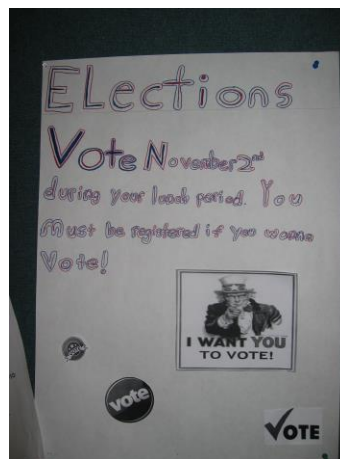 ELections
Vote November 2nd
during your lunch period. You
Must be registered if you wanna
Vote!
I WANT YOU
TO VOTE!
vote
VOTE